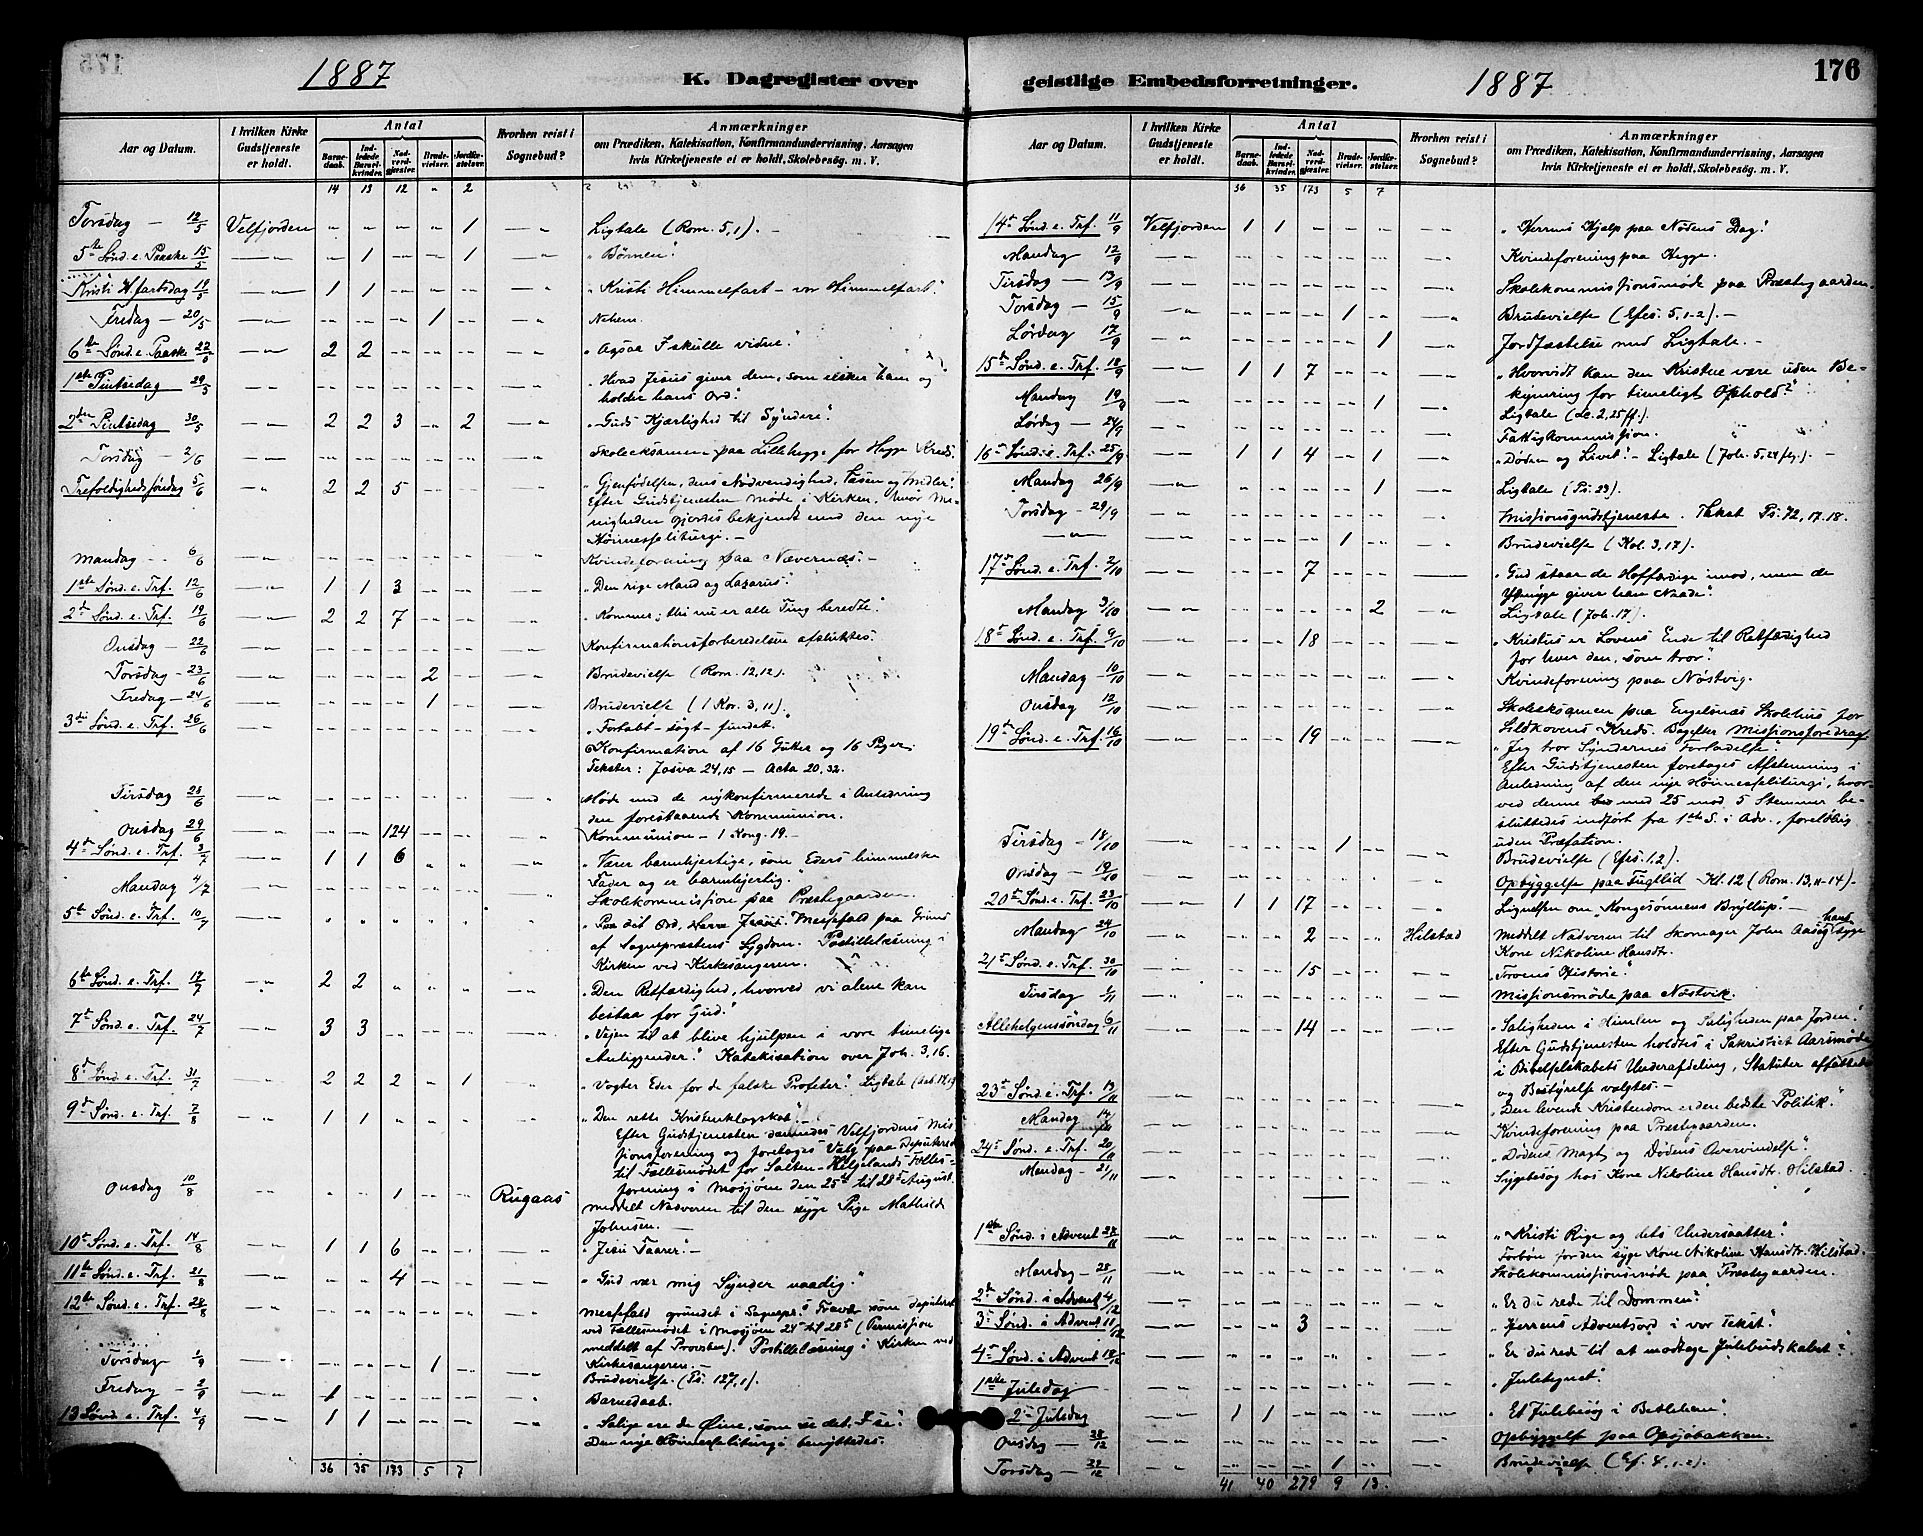 1887
K. Dagregister over
Aar og Datum.
I hvilken Kirke Gudstjeneste er holdt.
Antal
Barnedaab.
Indledede Barselkvinder.
Nadverdgjæster.
Brudevielser.
Jordfæstelser.
Hvorhen reist i Sognebud?
Anmærkninger
om Prædiken, Katekisation, Konfirmandundervisning, Aarsagen
hvis Kirketjeneste ei er holdt, Skolebesøg. m. V.
14 13 12 " 2
Torsdag — 12/5 Velfjorden " " " " 1 Ligtale (Rom. 5,1). —
5te Sønd. e. Paaske 15/5 " 1 " " 1 „Bønnen“.
Kristi H.fartsdag 19/5 1 1 " " " „Kristi Himmelfart — vor Himmelfart“.
Fredag — 20/5 " " " 1 "
6te Sønd. e. Paaske 22/5 2 2 " " " „Ogsaa I skulle vidne“.
1ste Pintsedag 29/5 " " " " " „Hvad Jesus giver dem, som elsker ham og
holder hans Ord“.
2den Pintsedag 30/5 2 2 3 " 2 „Guds Kjærlighed til Syndere“.
Torsdag — 2/6 " " " " " Skoleeksamen paa Lillehegge for Hegge Kreds.
Trefoldighedssøndag 5/6 2 2 5 " " „Gjenfødelsen, dens Nødvendighed, Væsen og Midler“.
Efter Gudstjenesten Møde i Kirken, hvor Me-
nigheden gjordes bekjendt med den nye
Høimesseliturgi. —
Mandag — 6/6 " " " " " Kvindeforening paa Nævernæs. —
1ste Sønd. e. Trf. 12/6 1 1 3 " " „Den rige Mand og Lazarus“.
2d Sønd. e. Trf. 19/6 2 2 7 " " „Kommer, thi nu er alle Ting beredte“.
Onsdag — 22/6 " " " " " Konfirmationsforberedelsen afsluttes.
Torsdag — 23/6 " " " 2 " Brudevielse (Rom. 12,12).
Fredag — 24/6 " " " 1 " Brudevielse (1 Kor. 3,11).
3die Sønd. e. Trf. 26/6 " " " " " „Fortabt — søgt — fundet.“
Konfirmation af 16 Gutter og 16 Piger.
Tekster: Josva 24,15 — Acta 20,32.
Tirsdag 28/6 " " " " " Møde med de nykonfirmerede i Anledning
den forestaaende Kommunion.
Onsdag 29/6 " " 124 " " Kommunion — 1 Kong. 19. —
4d Sønd. e. Trf. 3/7 1 1 6 " " „Værer barmhjertige, som Eders himmelske
Fader og er barmhjertig.“
Mandag 4/7 " " " " " Skolekommission paa Præstegaarden.
5te Sønd. e. Trf. 10/7 " " " " " „Paa dit Ord, Herre Jesus“. Messefald paa Grund
af Sognepræstens Sygdom. Postillelæsning i
Kirken ved Kirkesangeren.
6te Sønd. e. Trf. 17/7 2 2 " " " „Den Retfærdighed, hvorved vi alene kan
bestaa for Gud.“
7d Sønd. e. Trf. 24/7 3 3 " " " „Vejen til at blive hjulpen i vore timelige
Anliggender“. Katekisation over Joh. 3,16.
8d Sønd. e. Trf. 31/7 2 2 2 " 1 „Vogter Eder for de falske Profeter“. Ligtale
9d Sønd. e. Trf. 7/8 1 1 " " " „Den rette Kristenklogskab“.
Efter Gudstjenesten dannedes Velfjordens Mis-
sionsforening og foretoges Valg paa Deputeret
til Fællesmødet for Salten-Helgelands Fælles-
forening i Mosjøen den 25d til 28d August.
Onsdag 10/8 " " 1 " " Rugaas meddelt Nadveren til den syge Pige Mathilde
Johnsen. —
10d Sønd. e. Trf. 14/8 1 1 6 " " „Jesu Taarer“. —
11te Sønd. e. Trf. 21/8 " " 4 " " „Gud vær mig Synder naadig“.
12te Sønd. e. Trf. 28/8 " " " " " Messefald grundet i Sognepr.s Fravær som deputeret
ved Fællesmødet i Mosjøen 24d til 28d (Permission
meddelt af Provsten). Postillelæsning i Kirken ved
Kirkesangeren. —
Torsdag 1/9 " " " 1 " Brudevielse. (Ps. 127,1).
Fredag — 2/9 1 " " " " Barnedaab.
13 Sønd. e. Trf. 4/9 1 1 " " " „Salige ere de Øine, som se det, I se“.
Den nye Høimesseliturgi benyttedes.
36 35 173 5 7
geistlige Embedsforretninger.
1887
176
Aar og Datum.
I hvilken Kirke Gudstjeneste er holdt.
Antal
Barnedaab.
Indledede Barselkvinder.
Nadverdgjæster.
Brudevielser.
Jordfæstelser.
Hvorhen reist i Sognebud?
Anmærkninger
om Prædiken, Katekisation, Konfirmandundervisning, Aarsagen
hvis Kirketjeneste ei er holdt, Skolebesøg. m. V.
36 35 173 5 7
14d Sønd. e. Trf. 11/9 Velfjorden 1 1 " " " „Herrens Hjelp paa Nødens Dag“.
Mandag 12/9 " " " " " Kvindeforening paa Hegge.
Tirsdag — 13/9 " " " " " Skolekommissionsmøde paa Præstegaarden.
Torsdag — 15/9 " " " 1 " Brudevielse (Efes. 5,1-2). —
Lørdag 17/9 " " " " 1 Jordfæstelse med Ligtale. —
15d Sønd. e. Trf. 18/9 1 1 7 " " „Hvorvidt kan den Kristne være uden Be-
kymring for timeligt Ophold?“
Mandag 19/9 " " " " 1 Ligtale (Lc. 2,25 ff).
Lørdag — 24/9 " " " " " Fattigkommission.
16d Sønd. e. Trf. 25/9 1 1 4 " 1 „Døden og Livet“. — Ligtale (Joh. 5,24 flg.). —
Mandag 26/9 " " " " 1 Ligtale (Ps. 23).
Torsdag — 29/9 " " " " " Missionsgudstjeneste. Tekst Ps. 72, 17.18.
" " " 1 " Brudevielse (Kol. 3,17).
17d Sønd. e. Trf. 2/10 " " 7 " " „Gud staar de Hoffærdige imod, men de
Ydmyge giver han Naade“.
Mandag 3/10 " " " " 2 Ligtale (Joh. 17).
18d Sønd. e. Trf. 9/10 " " 18 " " „Kristus er Lovens Ende til Retfærdighed
for hver den, som tror“.
Mandag 10/10 " " " " " Kvindeforening paa Nøstvig.
Onsdag 12/10 " " " " " Skoleeksamen paa Engelsnæs Skolehus for
Sildkovens Kreds. Bagefter Missionsforedrag
19d Sønd. e. Trf. 16/10 " " 19 " " „Jeg tror Syndernes Forladelse“.
Efter Gudstjenesten foretoges Afstemning i
Anledning af den nye Høimesseliturgi, hvor-
ved denne med 25 mod 5 Stemmer be-
sluttedes indført fra 1ste S. i Adv., foreløbig
uden Præfation.
Tirsdag — 18/10 " " " 1 " Brudevielse (Efes. 1,2).
Onsdag — 19/10 " " " " " Opbyggelse paa Fugllid — Kl. 12 (Rom. 13,11-14).
20d Sønd. e. Trf. 23/10 1 1 17 " " Lignelsen om „Kongesønnens Bryllup“. —
Mandag 24/10 " " 2 " " Hilstad meddelt Nadveren til Skomager John Aas og hans syge
Kone Nikoline Hansdtr.
21d Sønd. e. Trf. 30/10 " " 15 " " „Troens Historie“.
Tirsdag 1/11 " " " " " Missionsmøde paa Nøstvik.
Allehelgenssøndag 6/11 " " 14 " " „Saligheden i Himlen og Saligheden paa Jorden“.
Efter Gudstjenesten holdtes i Sakristiet Aarsmøde
i Bibelselskabets Underafdeling, Statuter affattedes
og Bestyrelse valgtes. —
23d Sønd. e. Trf. 13/11 " " " " " „Den levende Kristendom er den bedste Politik“.
Mandag 14/11 " " " " " Kvindeforening paa Præstegaarden.
24d Sønd. e. Trf. 20/11 " " " " " „Dødens Magt og Dødens Overvindelse“.
Mandag — 21/11 " " " " " Sygebesøg hos Kone Nikoline Hansdtr. Hilstad.
1ste Sønd. i Advent 27/11 " " " " " „Kristi Rige og dets Undersaatter“.
Forbøn for den syge Kone Nikoline Hansdtr. Hilstad.
Mandag — 28/11 " " " " " Skolekommissionsmøde paa Præstegaarden.
2d Sønd. i Advent 4/12 " " " " " „Er du rede til Dommen“?
3d Sønd. i Advent 11/12 " " 3 " " „Herrens Adventsord i vor Tekst“.
4d Sønd. i Advent 18/12 " " " " " „Er du rede til at modtage Julebudskabet“?
1ste Juledag " " " " " „Juletegnet“.
2d Juledag 1 1 " " " „Et Julebesøg i Betlehem“.
Onsdag — 28/12 " " " " " Opbyggelse paa Opsjøbakken.
Torsdag — 29/12 " " " 1 " Brudevielse (Ef. 4,1-2).
41 40 279 9 13